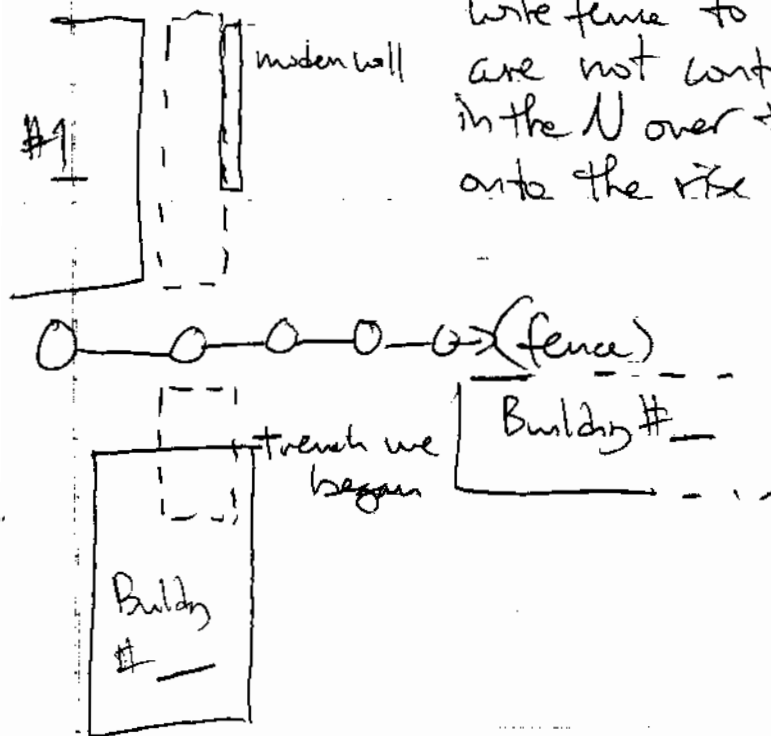 wire fence to
are not cont
in the N over t
onto the rise
modern wall
#1
(fence)
Building #__
trench we
began
Building
#__